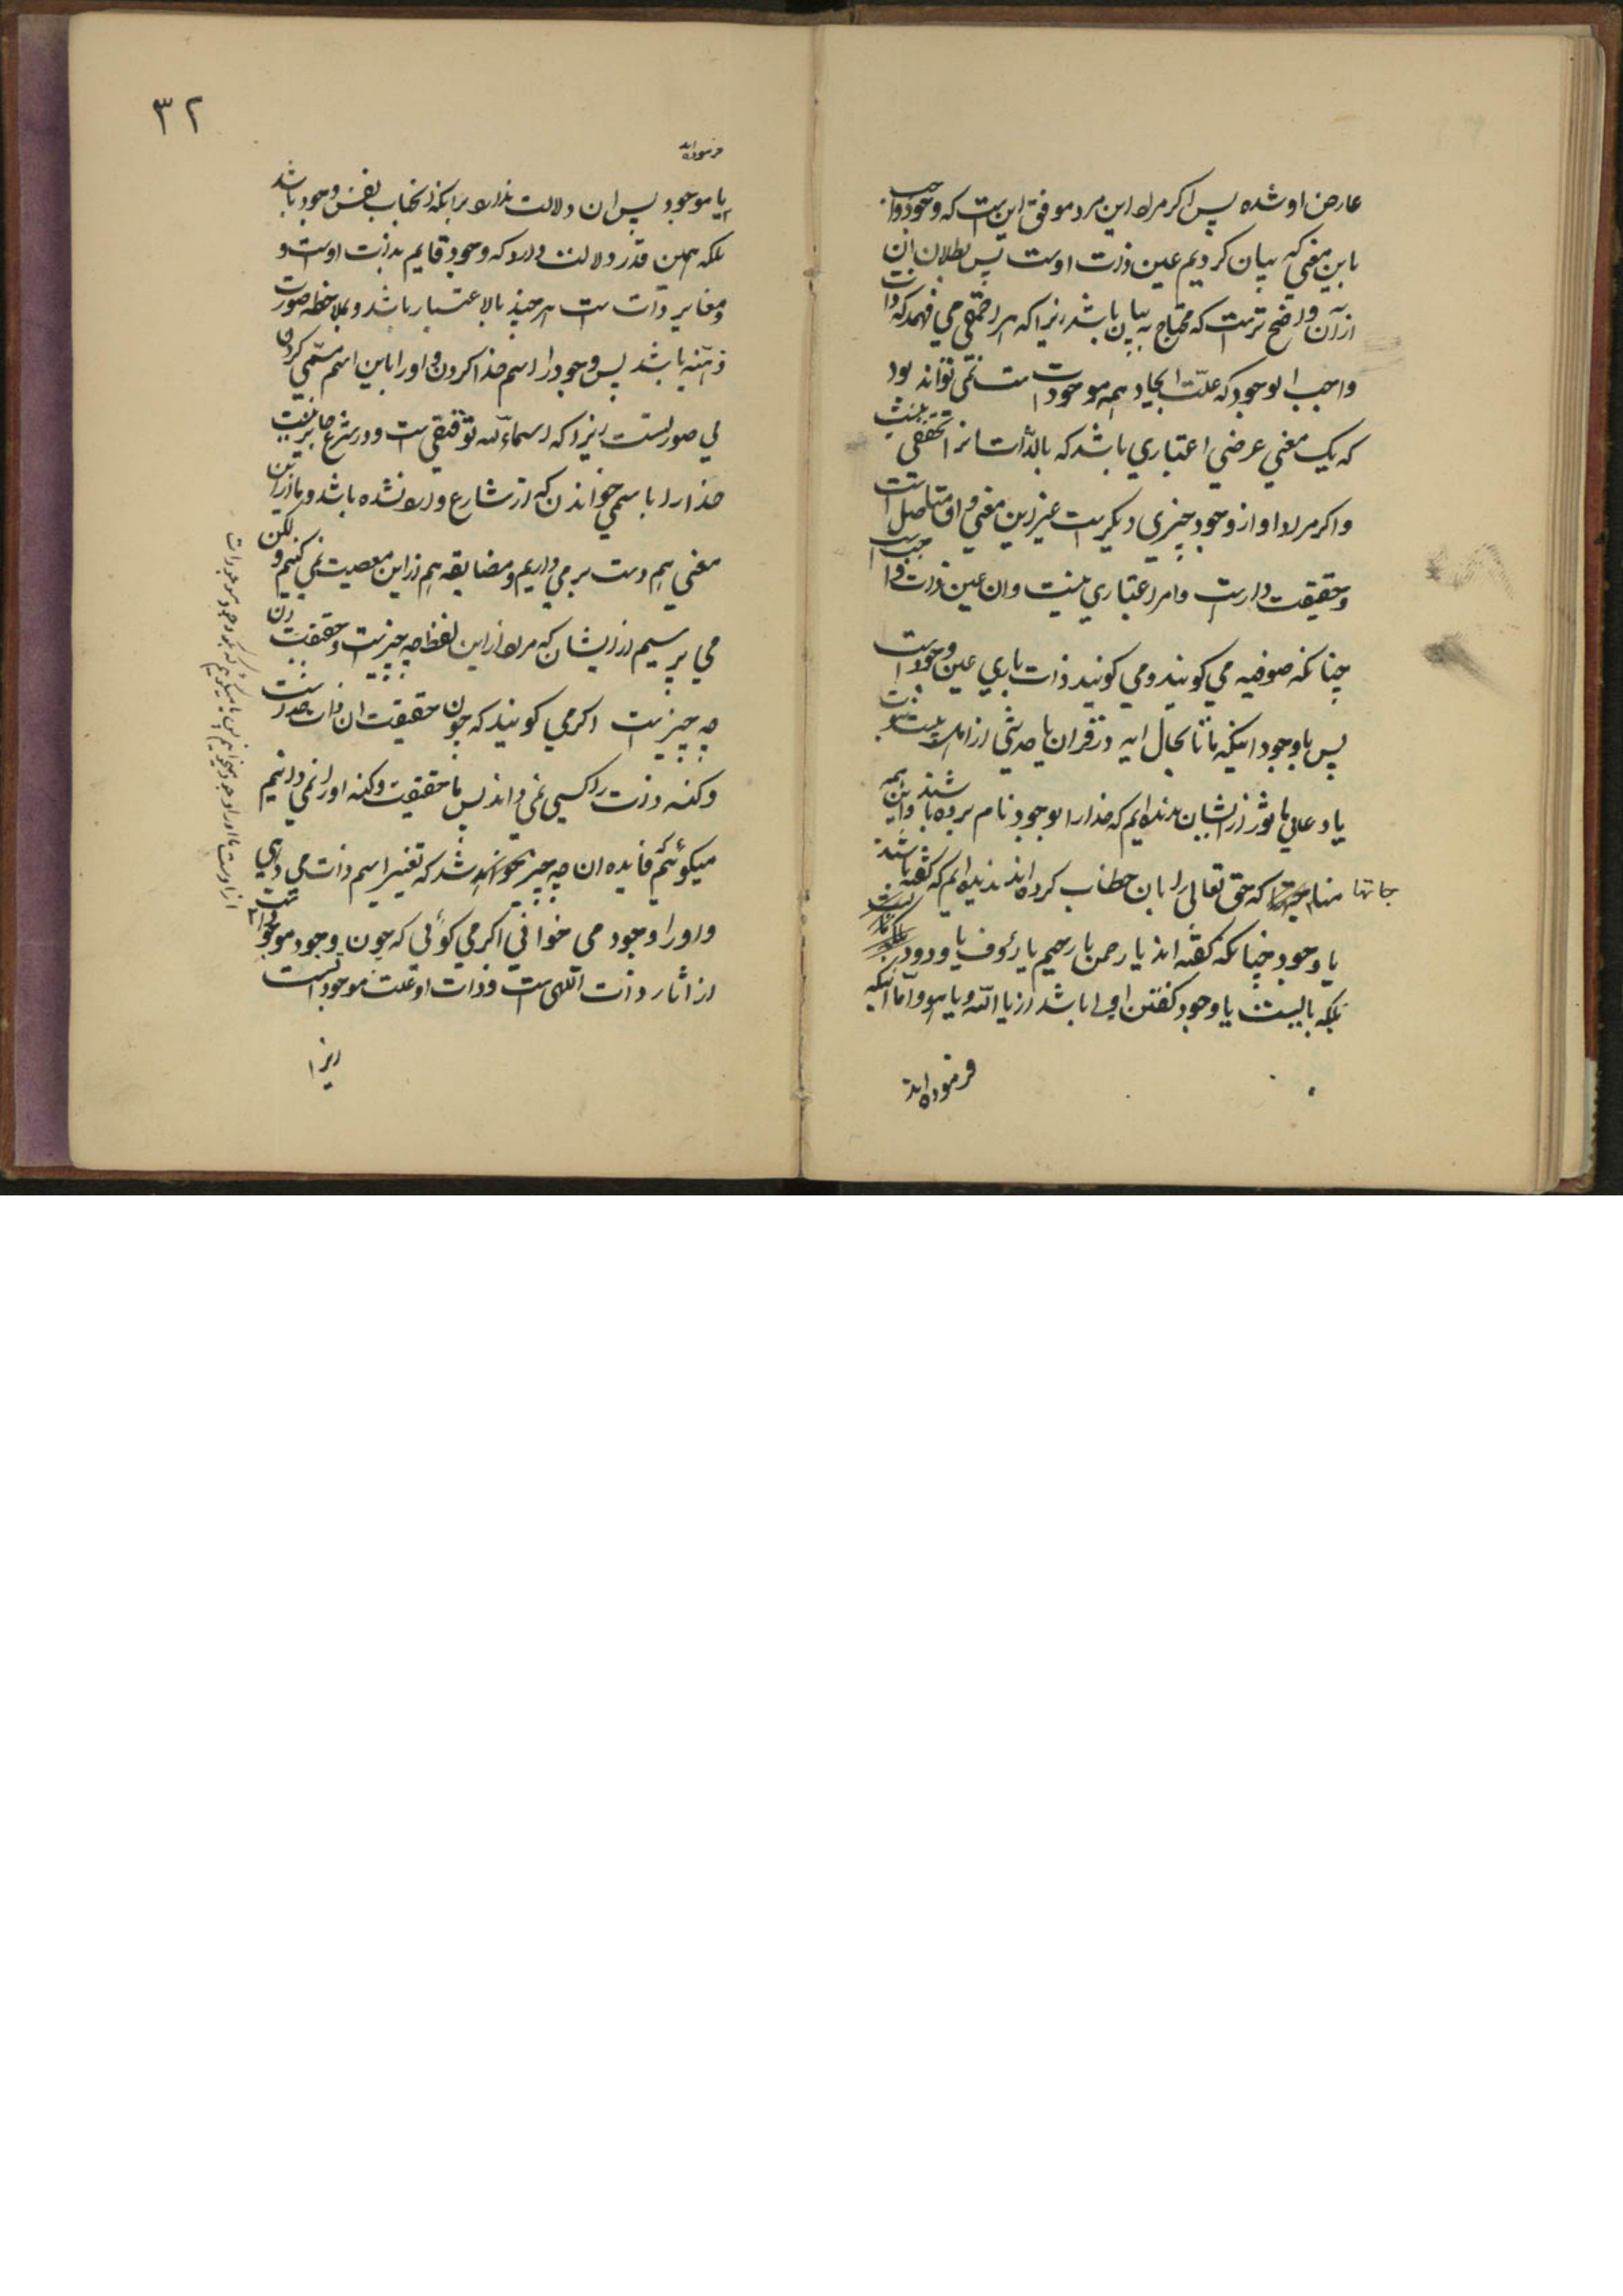 عارض او شده پس اکر مراد این مرد موفق این است که وجود واجب
باین معنی که بیان کردیم عین ذات اوست پس بطلان ان
ازان واضح تر است که محتاج به بیان باشد زیرا که هر احمقی می فهمد که ذات
واجب الوجود که علّت ایجاد همه موجودات است نمی تواند بود
که یک معنی عرضی اعتباری باشد که بالذّات انرا تحققی نیست
واکر مراد او از وجود چیزی دیکر است غیر این معنی و ان متاصل است
وحقیقت دارد وامر اعتباری نیست وان عین ذات واجب است
چنانکه صوفیه می کویند ومی کویند ذات باری عین وجود است
پس باوجود اینکه ما تا بحال ایه در قران یا حدیثی از
یا دعای ماثور از ایشان ندیده ایم که خدا را بوجود نام برده باشند واین همه
مناجاتها که حق تعالی را بان خطاب کرده اند ندیده ایم که کفته باشند
یا وجود چنانکه کفته اند یا رحمن یا رحیم یا رؤف یا ودود
بلکه بایست یا وجود کفتن اولی باشد از یا اللّه ویا هو وامّا اینکه
فرموده اند
٣٢
فرموده اند
یا موجود پس ان دلالت ندارد برانکه انجناب نفس وجود باشد
بلکه همین قدر دلالت دارد که وجود قایم بذات اوست و
ومغایر ذات است هر چند بالاعتبار باشد وبملاحظه صورت
ذهنیّه باشد پس وجود را اسم خدا کردن واورا باین اسم مسمّی کردن
بی صورتست زیرا که اسماء اللّه توقیفی است ودر شرع جایز نیست
خدا را باسمی خواندن که از شارع وارد نشده باشد وما از این
معنی هم دست بر می داریم ومضایقه هم از این معصیت نمی کنیم ولکن
می پرسیم از ایشان که مراد از این لفظ چه چیز است وحقیقت ان
چه چیز است اکر می کویند که چون حقیقت ان ذات خداست
وکنه ذات را کسی نمی داند پس ما حقیقت وکنه اورا نمی دانیم
میکوئیم فایده ان چه چیز خواهد شد که تغییر اسم ذات می دهی
واورا وجود می خوانی اکر می کوئی که چون وجود موجودات
از اثار ذات الهی است وذات او علّت موجود است
زیرا